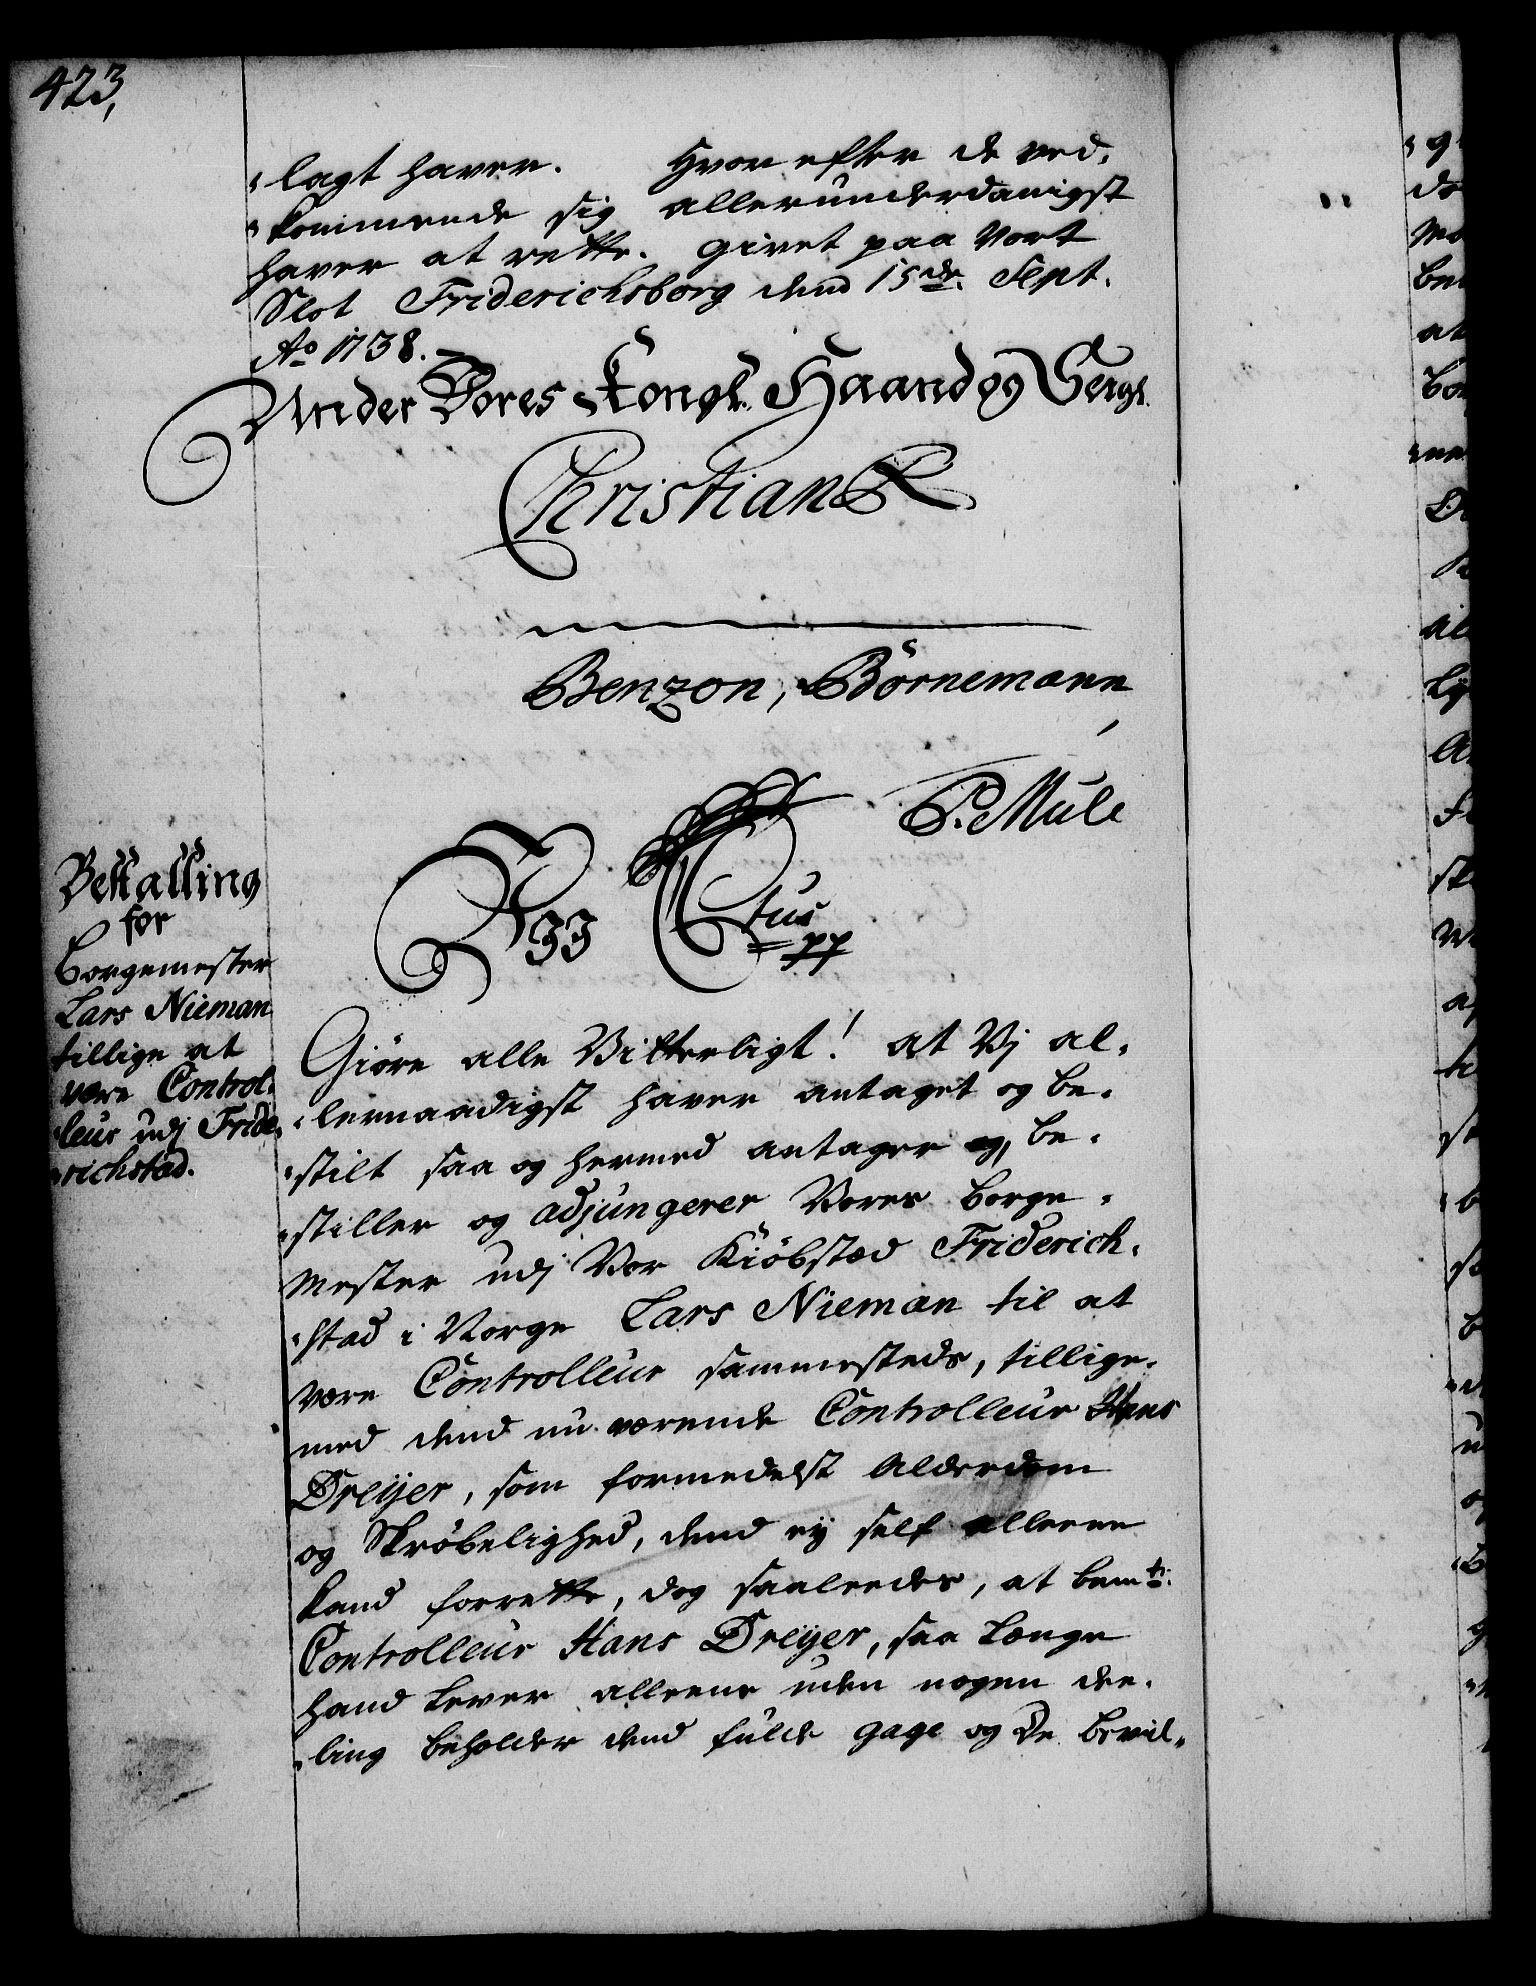 423,
lagt haver. Hvor efter de ved-
kommende sig allerunderdanigst
haver at rette. Givet paa Vort
Slot Friderichsborg dend 15de. Sept.
Ao. 1738.
Under Vores Kongl. Haand og Seigl
Christian R
Benzon, Börnemann
P. Mule
Bestalling
for
Borgemester
Lars Nieman
tillige at
være Control-
leur udj Fride-
richstad.
Vji Ctus
pp
Giöre alle Vitterligt! at Vj al-
lernaadigst haver antaget og be-
stilt saa og hermed antager og be-
stiller og adjungerer Vores Borge-
mester udj Vor Kiöbstæd Friderich-
stad i Norge Lars Nieman til at
være Controlleur sammesteds, tillige-
med dend nu værende Controlleur Hans
Dreyer, som formedelst Alderdom
og Skröbelighed, dend ey self alleene
kand forrette, dog saaleedes, at bemte.
Controlleur Hans Dreyer, saa længe
hand lever alleene uden nogen dee-
ling beholder dend fulde gage og De bevil-